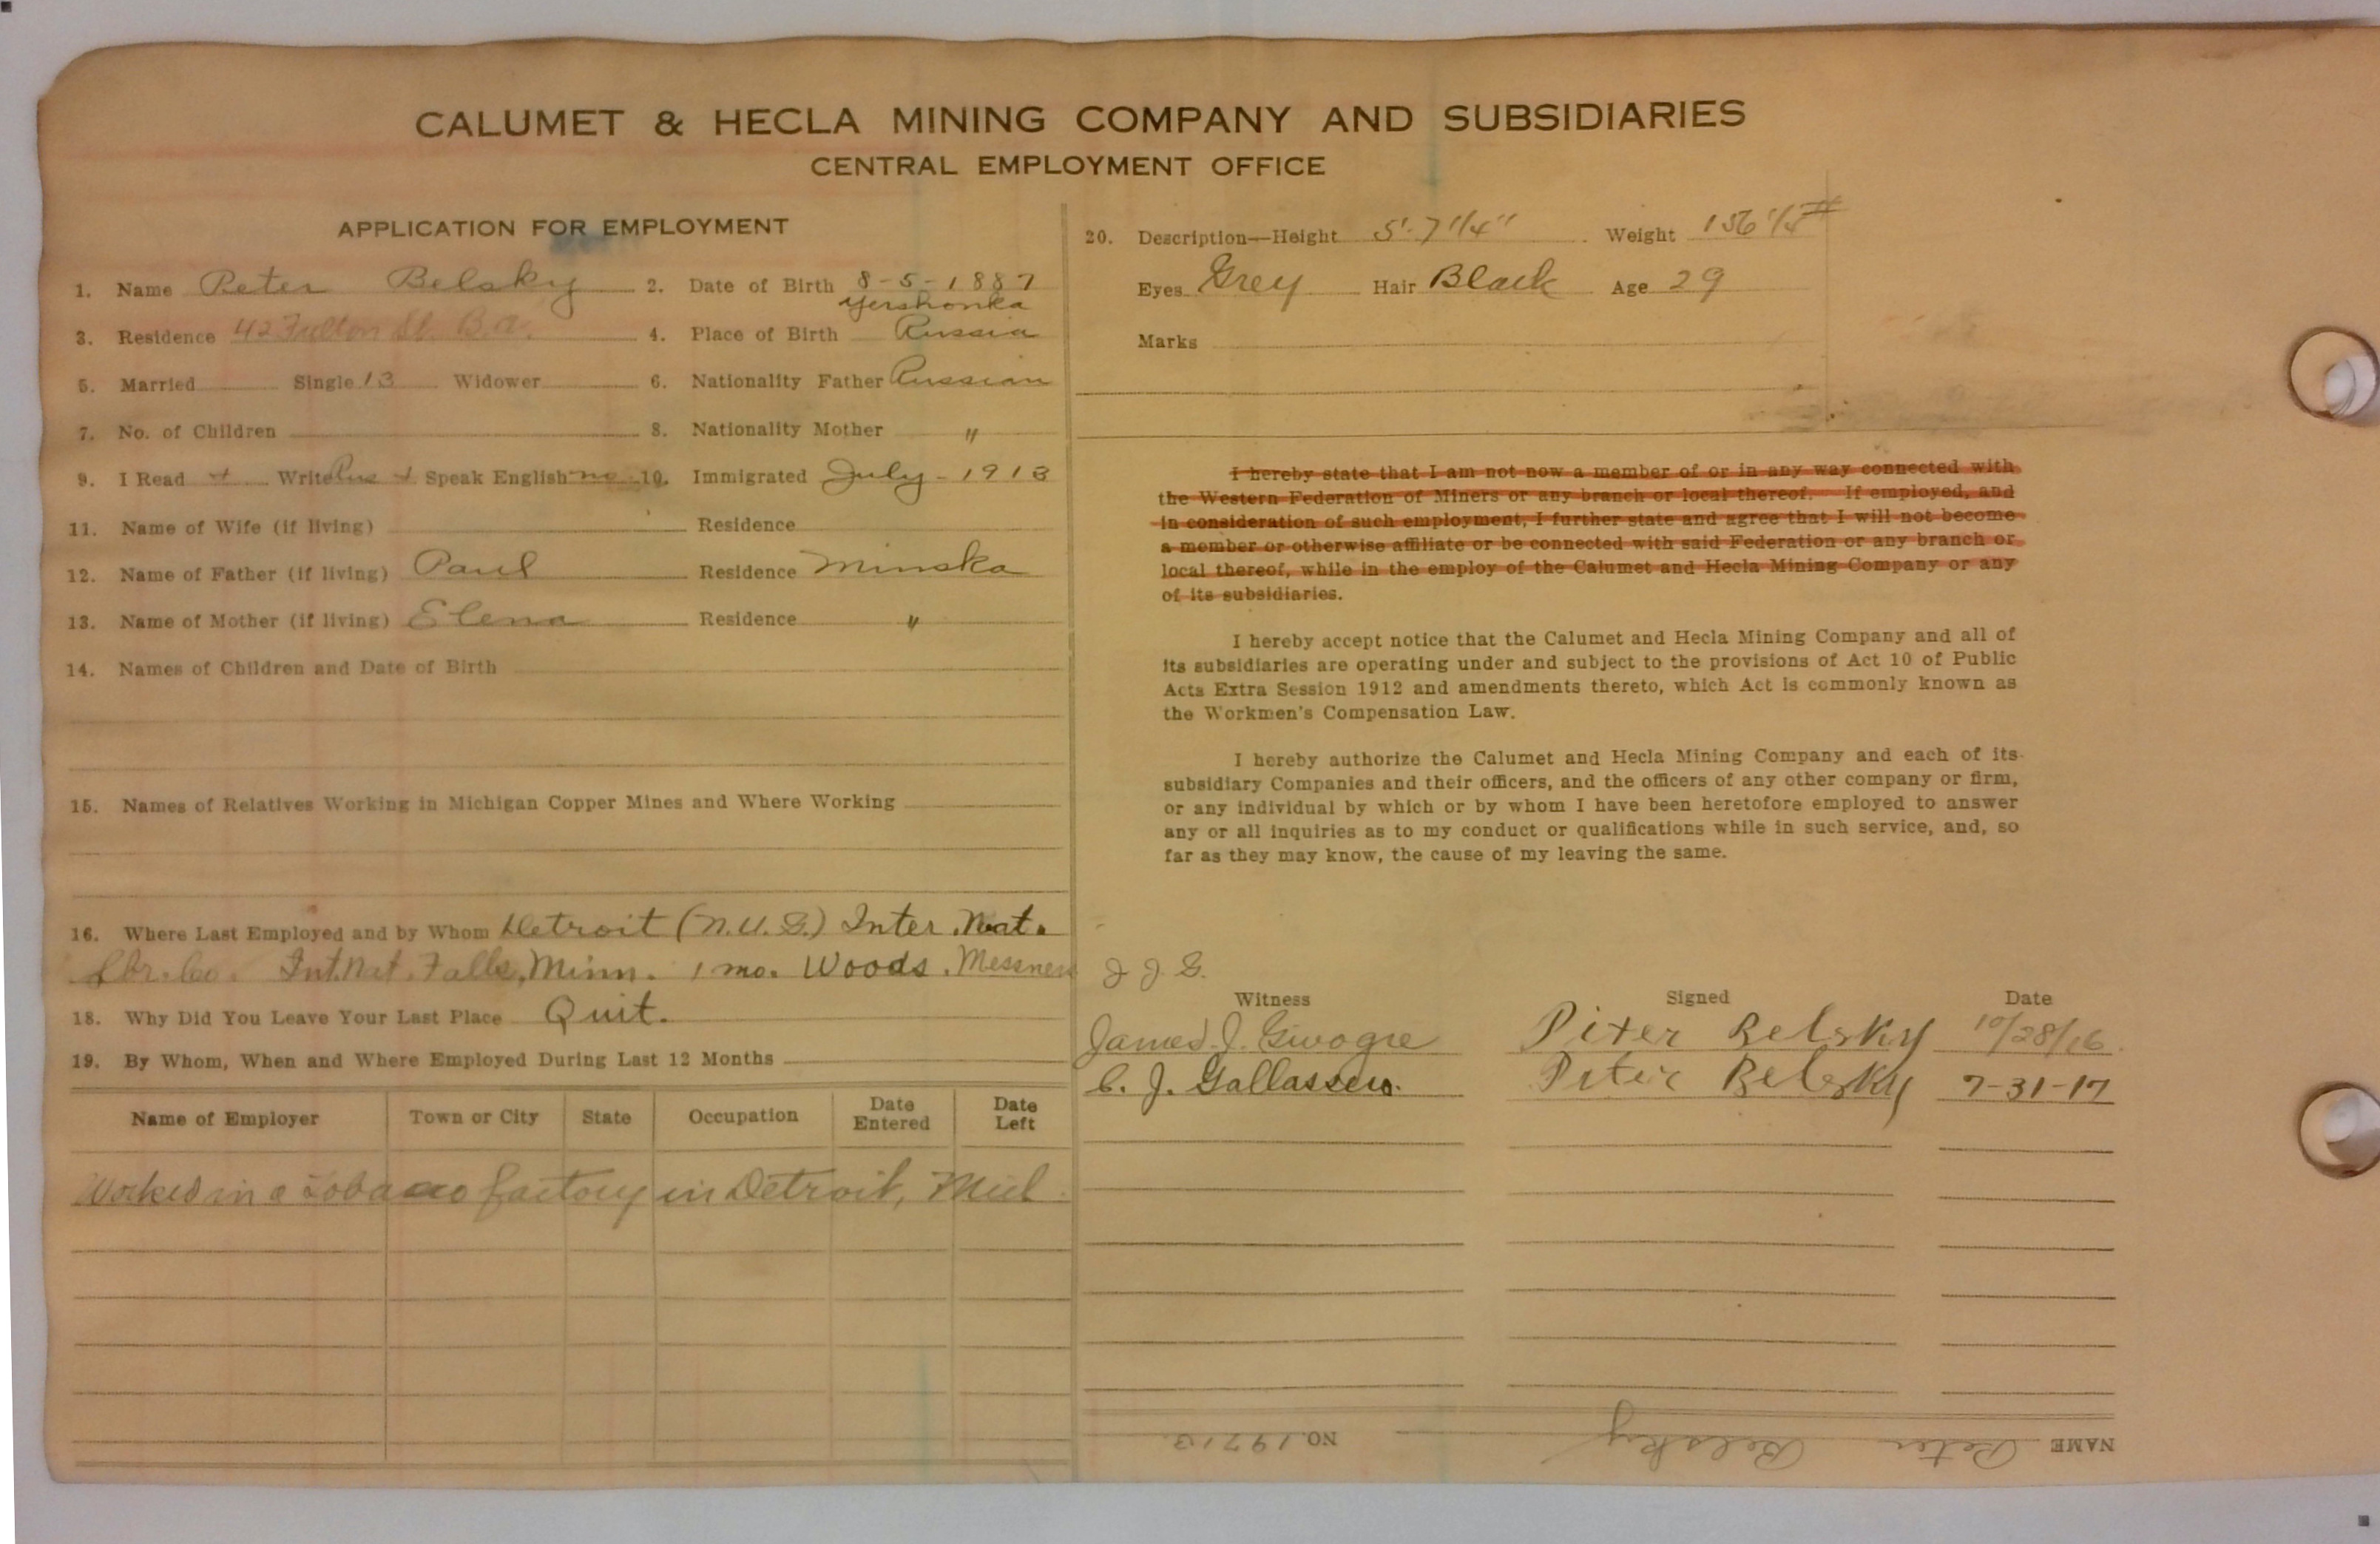 CALUMET & HECLA MINING COMPANY AND SUBSIDIARIES
CENTRAL EMPLOYMENT OFFICE
APPLICATION FOR EMPLOYMENT
1. Name Peter Belsky 2. Date of Birth 8-5-1887
Yershonka
3. Residence 42 Fulton St. B.A. 4. Place of Birth Russia
5. Married Single 13 Widower 6. Nationality Father Russian
7. No. of Children 8. Nationality Mother "
9. I Read + Write Rus + Speak English no 10. Immigrated July - 1913
11. Name of Wife (if living) Residence
12. Name of Father (if living) Paul Residence Minska
13. Name of Mother (if living) Elena Residence "
14. Names of Children and Date of Birth
15. Names of Relatives Working in Michigan Copper Mines and Where Working
16. Where Last Employed and by Whom Detroit (N.U.S.) Inter. Nat.
Lbr. Co. Int. Nat. Falls, Minn. 1 mo. Woods. Messner
18. Why Did You Leave Your Last Place Quit.
19. By Whom, When and Where Employed During Last 12 Months
Name of Employer Town or City State Occupation Date Entered Date Left
Worked in a tobacco factory in Detroit, Mich
20. Description—Height 5'-7 1/4" Weight 156 1/4 #
Eyes Grey Hair Black Age 29
Marks
I hereby state that I am not now a member of or in any way connected with
the Western Federation of Miners or any branch or local thereof. If employed, and
in consideration of such employment, I further state and agree that I will not become
a member or otherwise affiliate or be connected with said Federation or any branch or
local thereof, while in the employ of the Calumet and Hecla Mining Company or any
of its subsidiaries.
I hereby accept notice that the Calumet and Hecla Mining Company and all of
its subsidiaries are operating under and subject to the provisions of Act 10 of Public
Acts Extra Session 1912 and amendments thereto, which Act is commonly known as
the Workmen's Compensation Law.
I hereby authorize the Calumet and Hecla Mining Company and each of its
subsidiary Companies and their officers, and the officers of any other company or firm,
or any individual by which or by whom I have been heretofore employed to answer
any or all inquiries as to my conduct or qualifications while in such service, and, so
far as they may know, the cause of my leaving the same.
J. J. G.
Witness Signed Date
James J. Piter Belsky 10/28/16.
C. J. Peter Belsky 7-31-17
NAME Peter Belsky NO. 19713